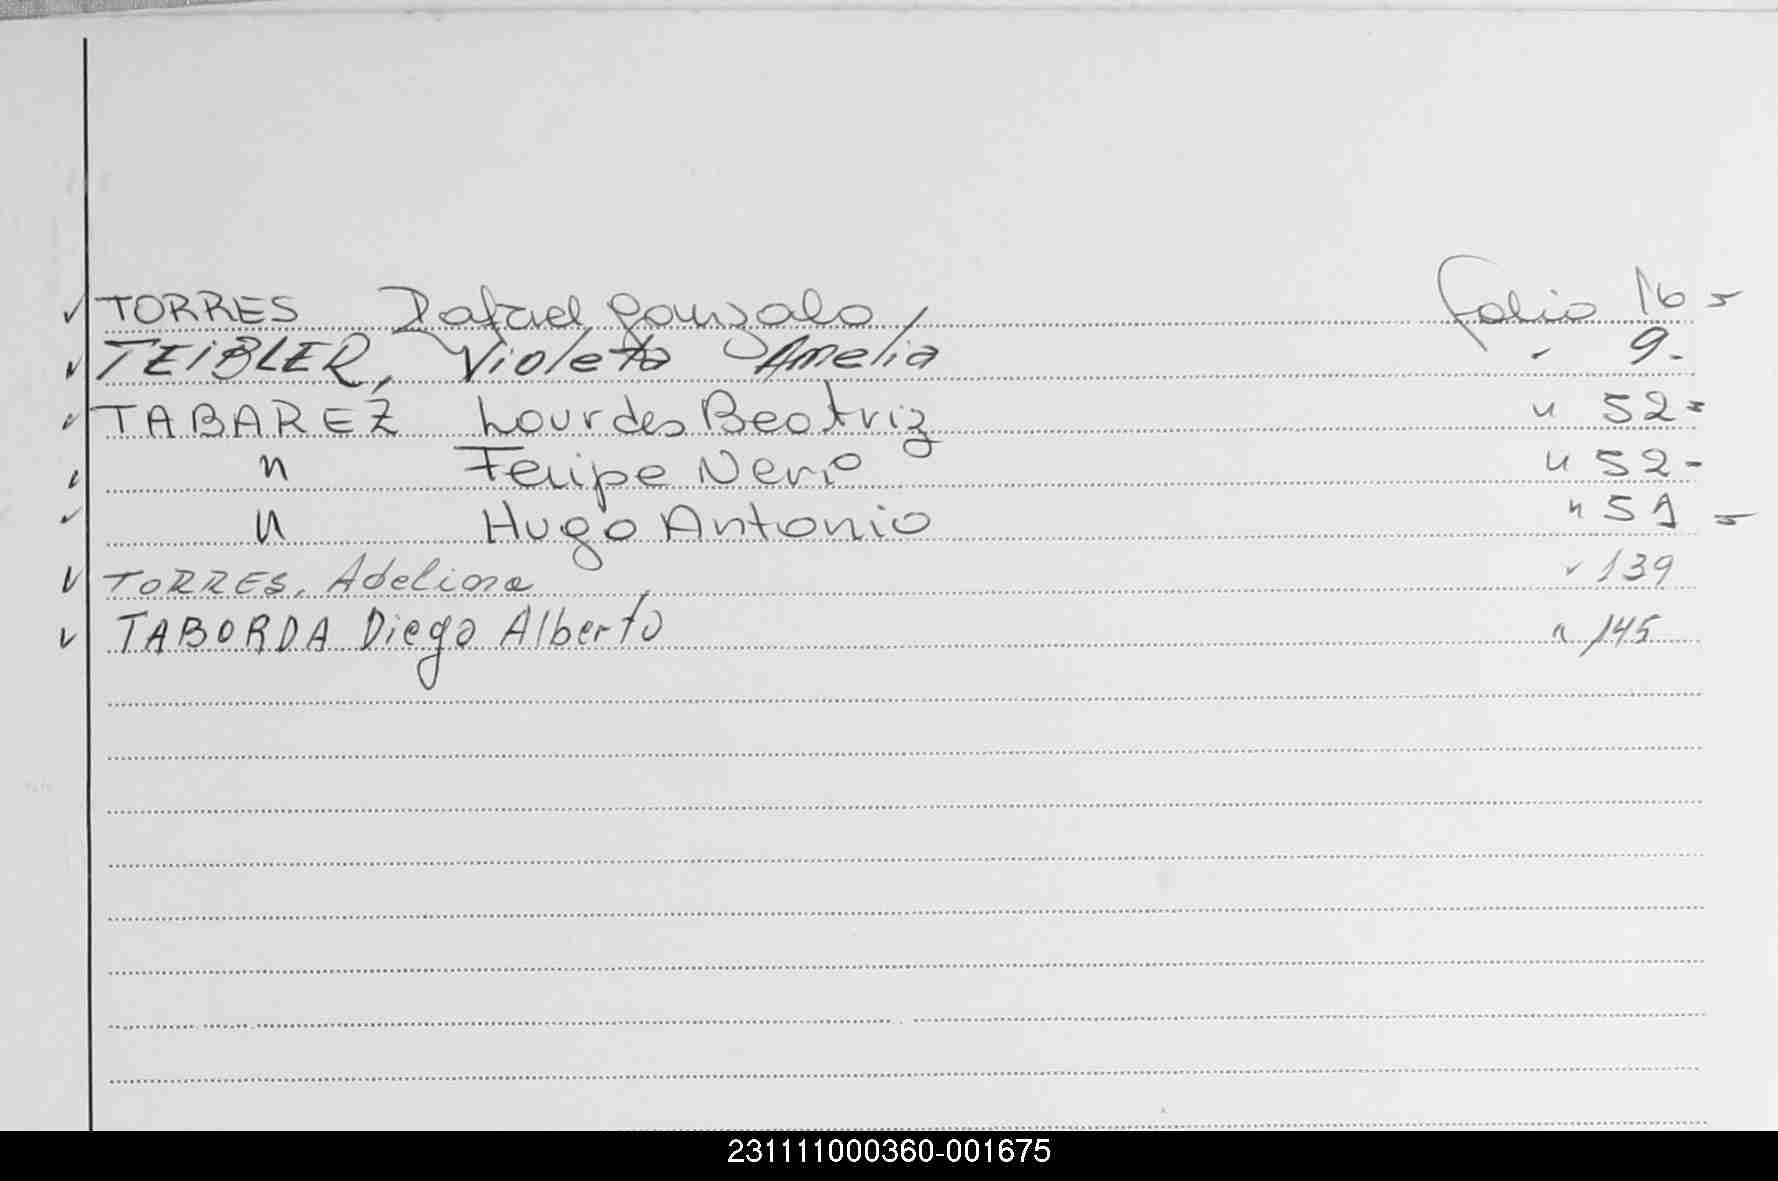 ✓ TORRES Rafael Gonzalo Folio 16 =
✓ TEIBLER, Violeta Amelia " 9.
✓ TABAREZ Lourdes Beatriz " 52 =
✓ " Felipe Nerio " 52 -
✓ " Hugo Antonio " 51 =
✓ TORRES, Adelina " 139
✓ TABORDA Diego Alberto " 145
231111000360-001675